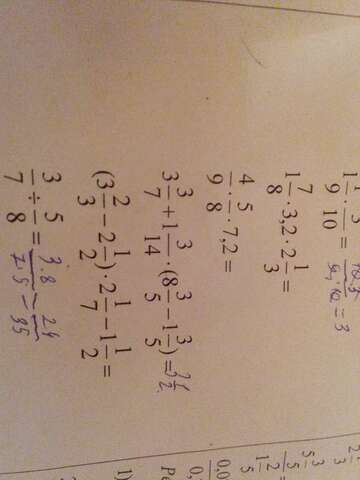 1 1/9 · 3/10 =
1 7/8 · 3,2 · 2 1/3 =
4/9 · 5/8 · 7,2 =
3 3/7 + 1 3/14 · (8 3/5 − 1 3/5) =
(3 2/3 − 2 1/2) · 2 1/7 − 1 1/2 =
3/7 ÷ 5/8 = 3·8/7·5 = 24/35